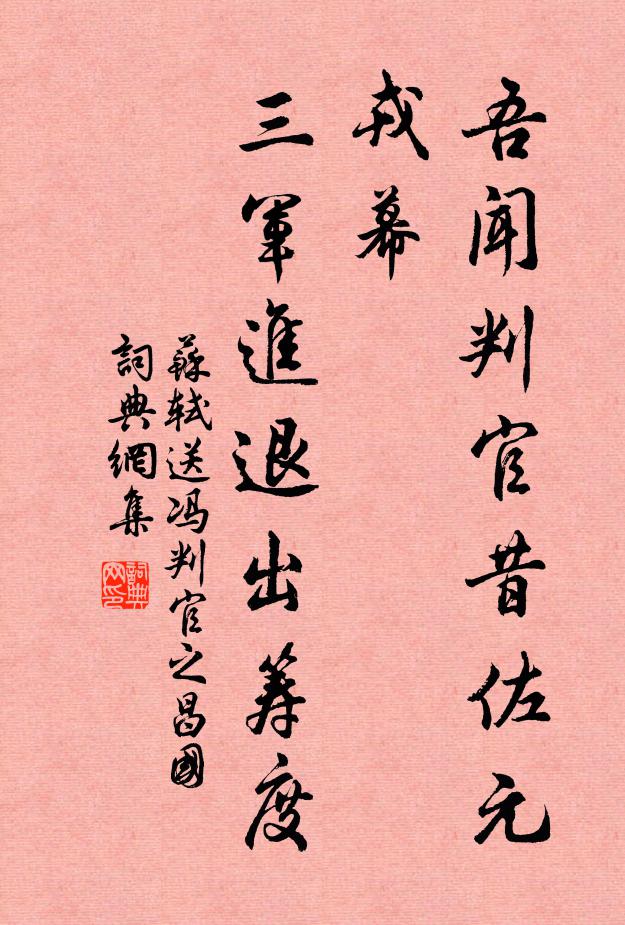 吾聞判官昔佐元
戎幕
三軍進退出筹度
蘇軾送冯判官之昌國
詞典網集
詞典网印